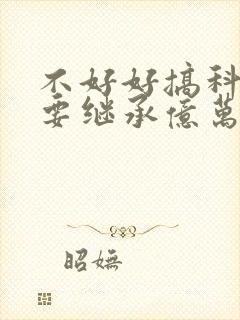 不好好搞科
要继承億萬
昭嫵